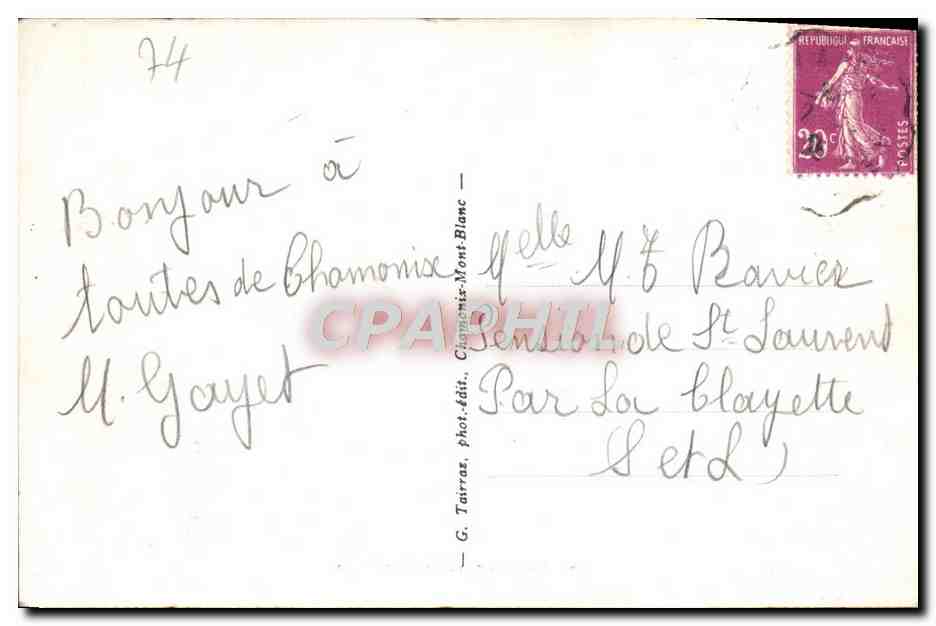 74
Bonjour à
toutes de Chamonix
M. Gayet
— G. Tairraz, phot.-édit., Chamonix-Mont-Blanc —
REPUBLIQUE FRANÇAISE
20c
POSTES
Melle M.T Ravier
Pension de St Laurent
Par La Clayette
(S et L)
CPAPHIL